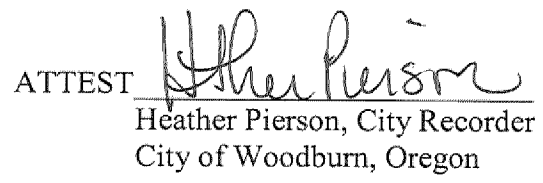 ATTEST Heather Pierson
Heather Pierson, City Recorder
City of Woodburn, Oregon